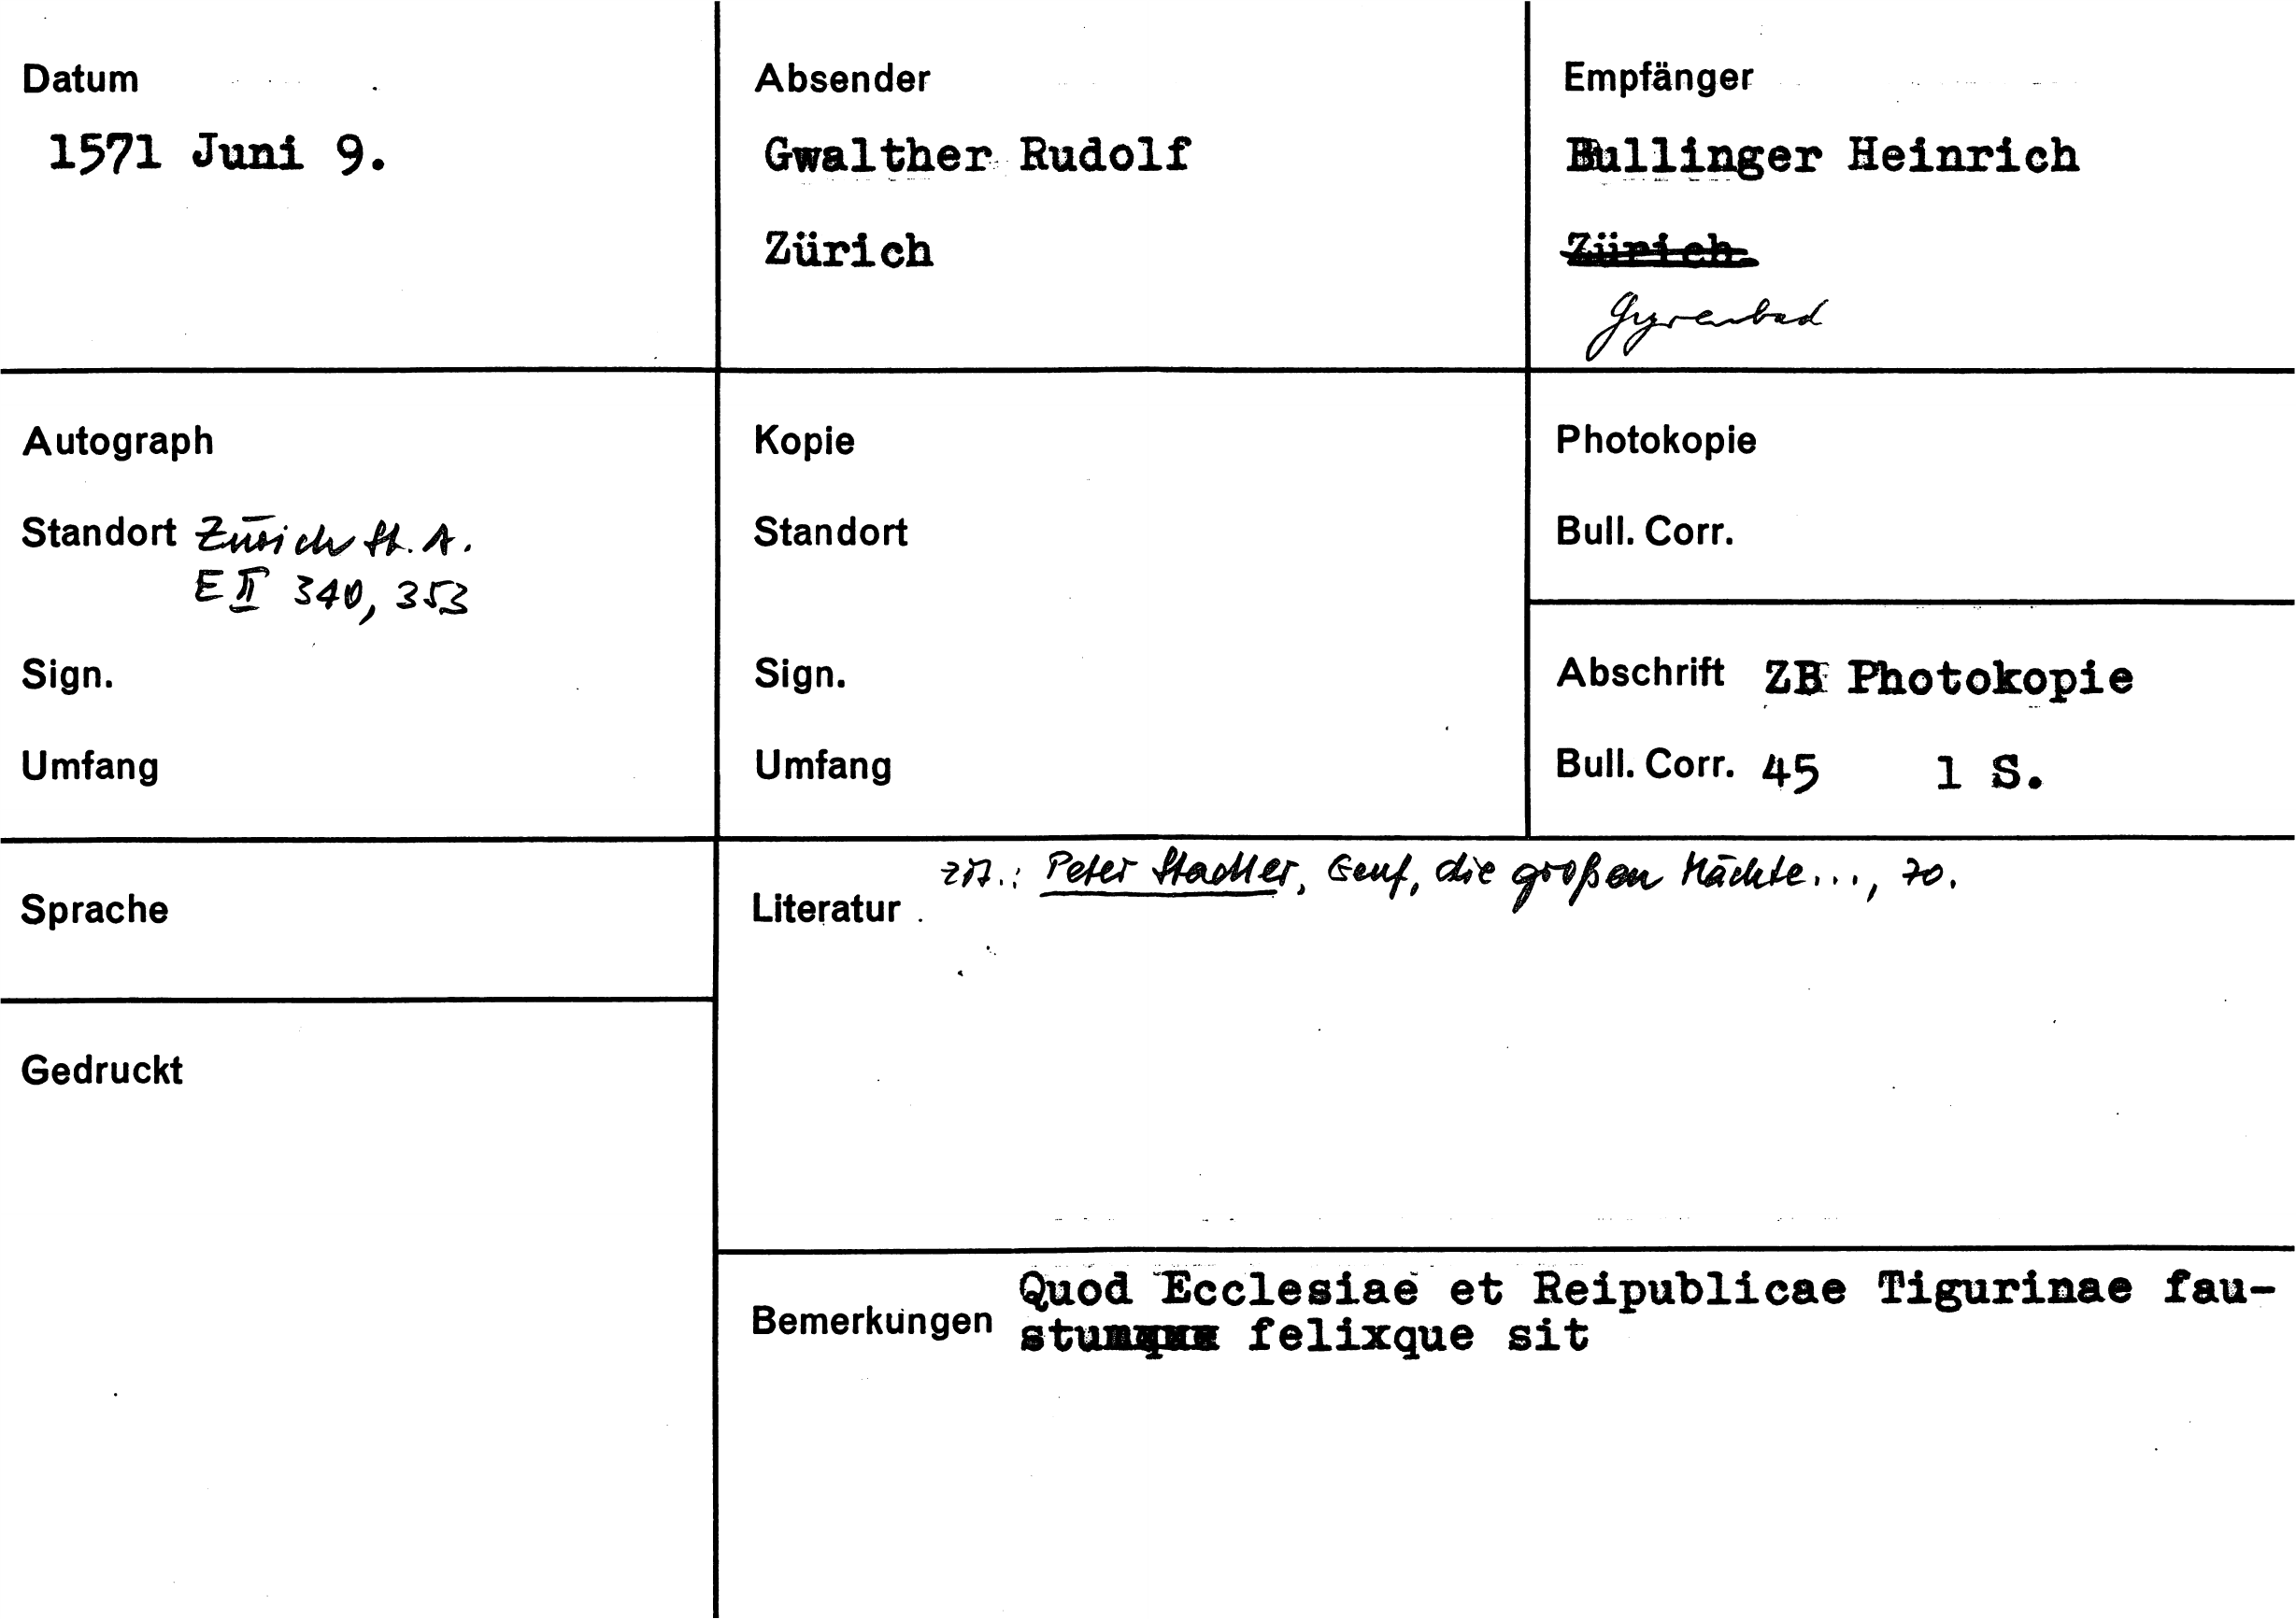 Datum
1571 Juni 9.
Absender
Gwalther Rudolf
Zürich
Empfänger
Bullinger Heinrich
Zürich
Gyrenbad
Autograph
Standort Zürich St. A.
E II 340, 353
Sign.
Umfang
Kopie
Standort
Sign.
Umfang
Photokopie
Bull. Corr.
Abschrift ZB Photokopie
Bull. Corr. 45 1 S.
Sprache
Gedruckt
zit.: Peter Stadler, Genf, die großen Mächte..., 70.
Literatur
Bemerkungen
Quod Ecclesiae et Reipublicae Tigurinae fau-
stum felixque sit